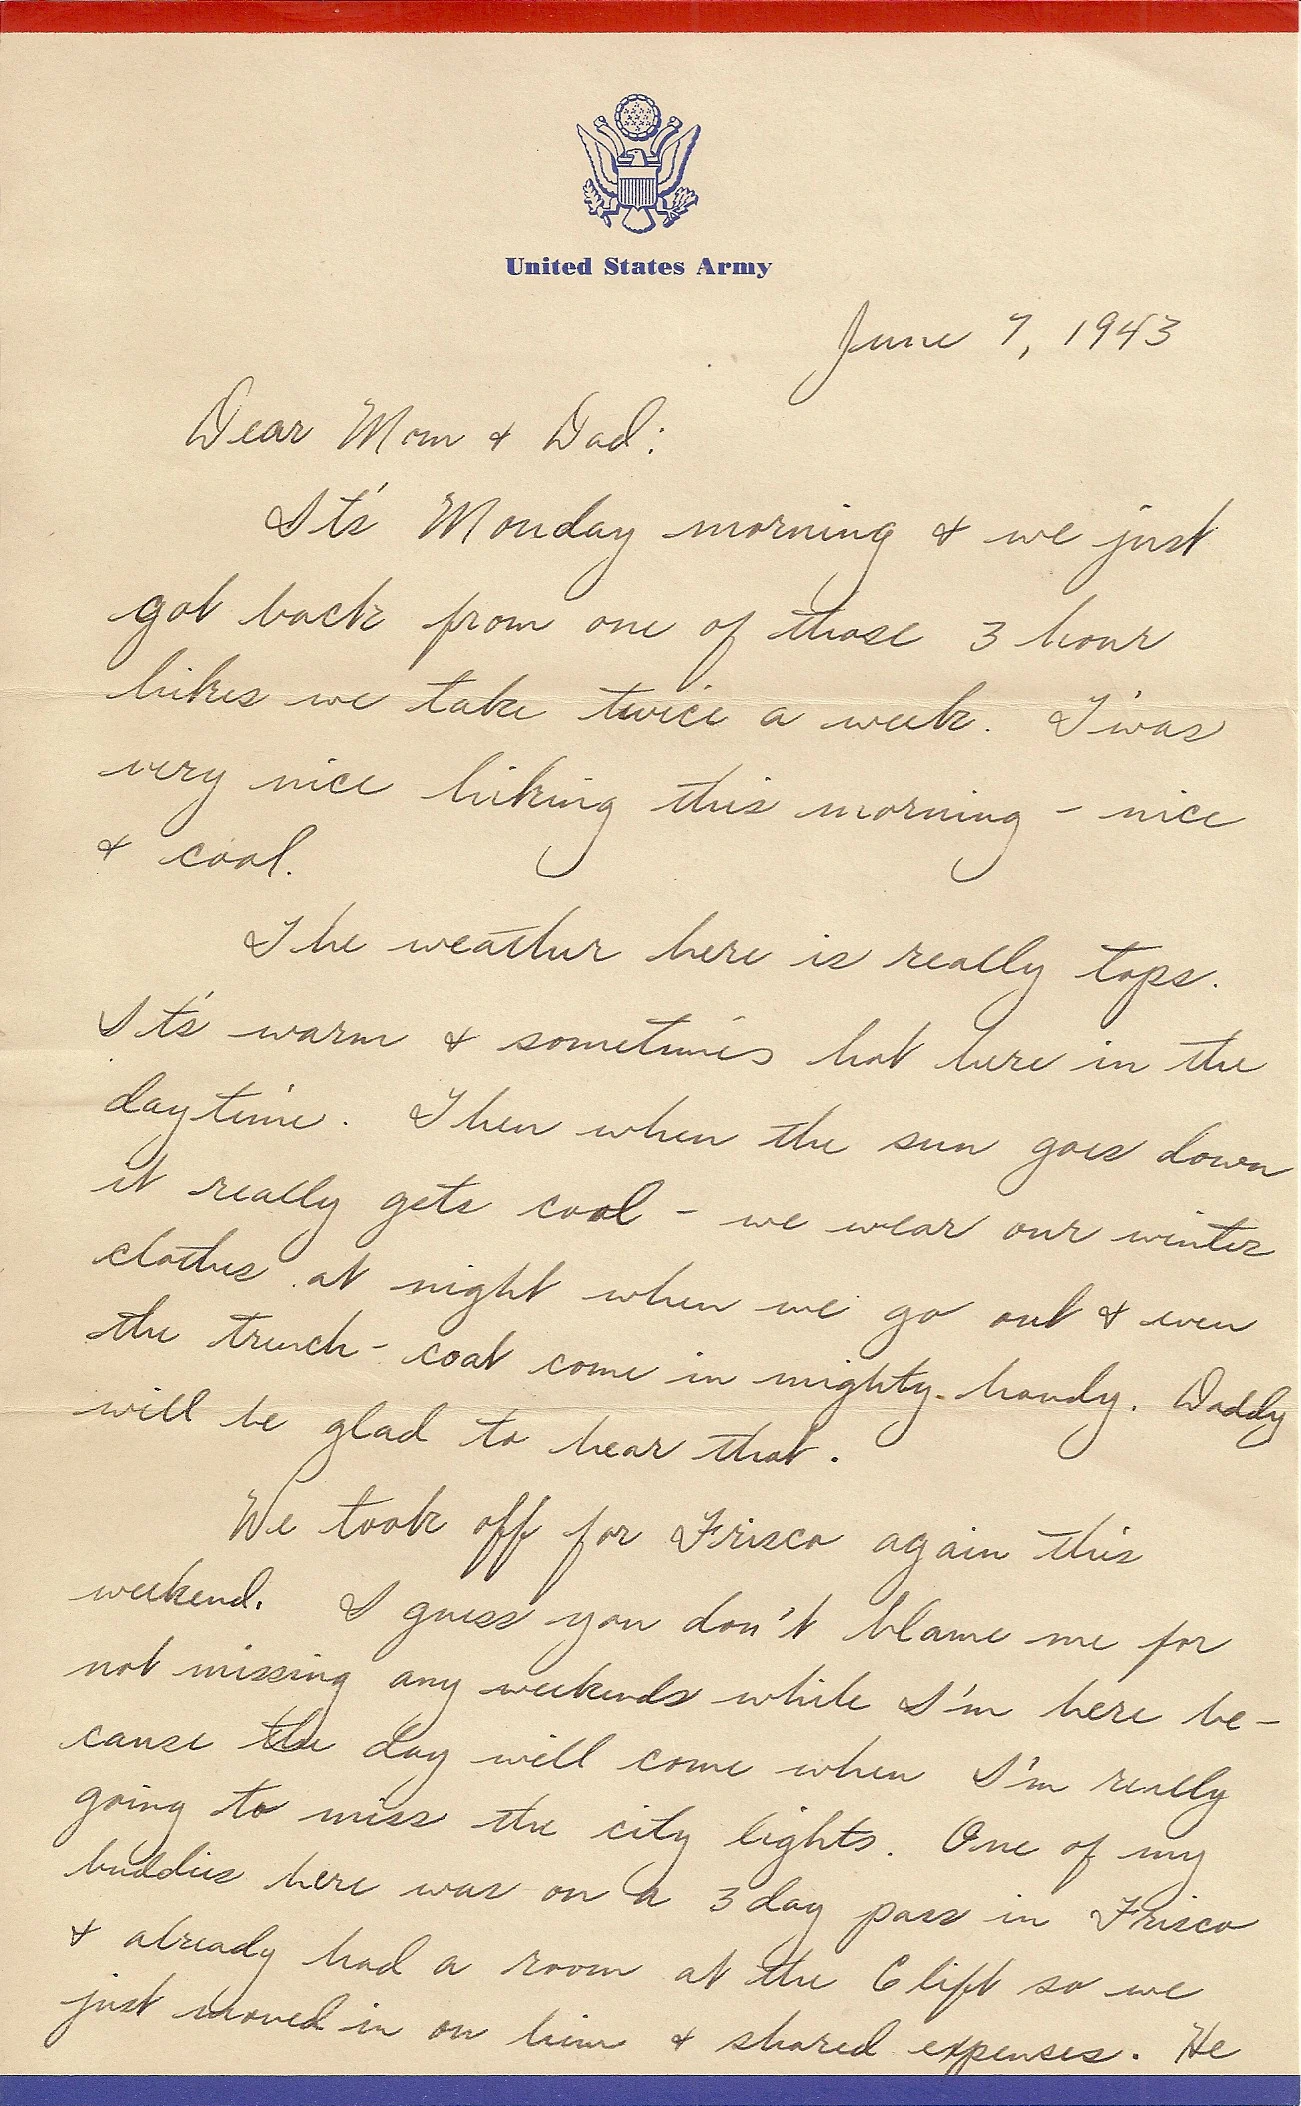 United States Army
June 7, 1943
Dear Mom & Dad:
It's Monday morning & we just
got back from one of those 3 hour
hikes we take twice a week. T'was
very nice hiking this morning - nice
& cool.
The weather here is really tops.
It's warm & sometimes hot here in the
daytime. Then when the sun goes down
it really gets cool - we wear our winter
clothes at night when we go out & even
the trench-coat come in mighty handy. Daddy
will be glad to hear that.
We took off for Frisco again this
weekend. I guess you don't blame me for
not missing any weekends while I'm here be-
cause the day will come when I'm really
going to miss the city lights. One of my
buddies here was on a 3 day pass in Frisco
& already had a room at the Clift so we
just moved in on him & shared expenses. He